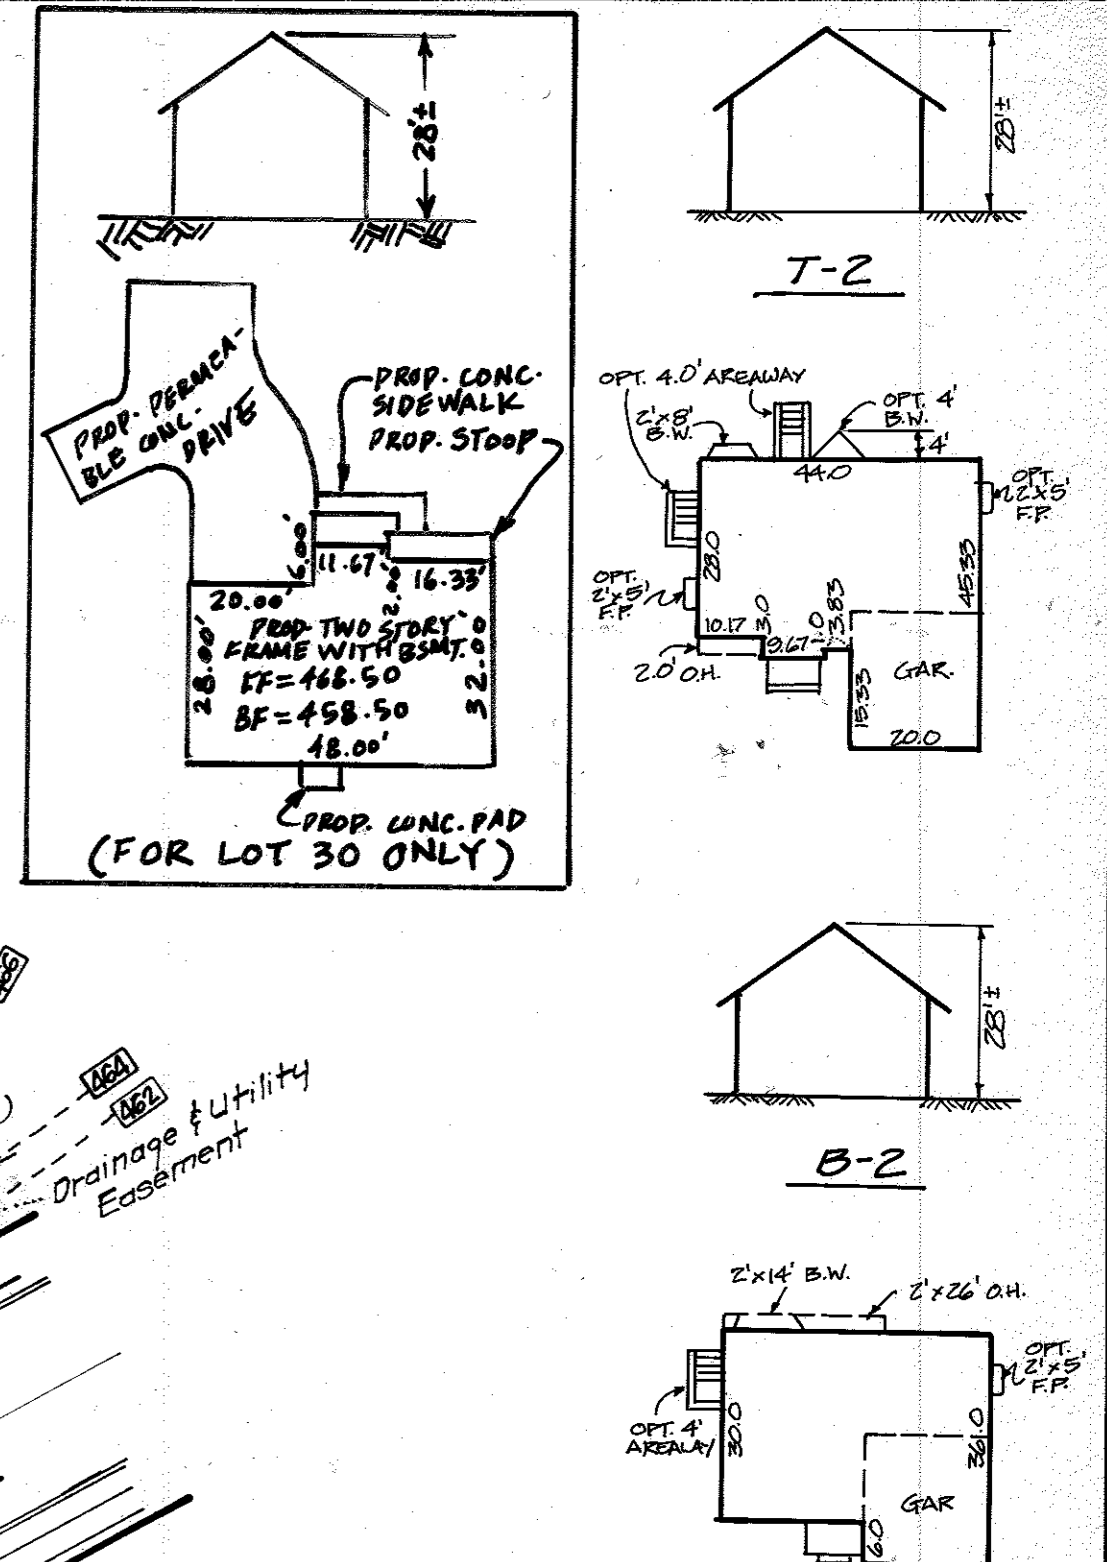 28'±
PROP. PERMEA-
BLE CONC.
DRIVE
PROP. CONC.
SIDEWALK
PROP. STOOP
6.00'
11.67'
2.00'
16.33'
20.00'
28.00'
PROP. TWO STORY
FRAME WITH BSMT.
FF=468.50
BF=458.50
32.00'
48.00'
PROP. CONC. PAD
(FOR LOT 30 ONLY)
466
464
462
Drainage & Utility
Easement
28'±
T-2
OPT. 4.0' AREAWAY
2'x8'
B.W.
OPT. 4'
B.W.
4'
44.0
OPT.
2'x5'
F.P.
28.0
45.33
OPT.
2'x5'
F.P.
10.17
3.0
9.67
3.83
2.0' O.H.
GAR.
15.33
20.0
28'±
B-2
2'x14' B.W.
2'x26' O.H.
OPT.
2'x5'
F.P.
OPT. 4'
AREAWAY
30.0
36.0
GAR
6.0